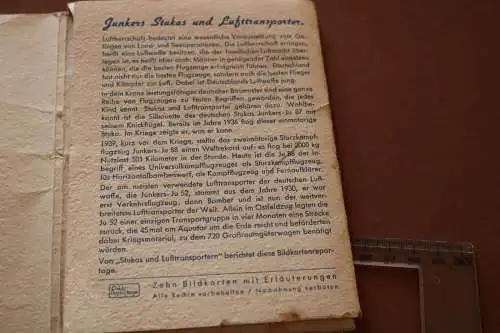 Junkers Stukas und Lufttransporter.
Luftherrschaft bedeutet eine wesentliche Voraussetzung zum Ge-
lingen von Land- und Seeoperationen. Die Luftherrschaft erringen,
heißt eine Luftwaffe besitzen, die der feindlichen Luftmacht über-
legen ist, es heißt aber auch: Männer in genügender Zahl einsetzen
können, die die besten Flugzeuge erfolgreich führen. Deutschland
hat nicht nur die besten Flugzeuge, sondern auch die besten Flieger
und Kämpfer zur Luft. Dabei ist Deutschlands Luftwaffe jung.
In dem Kranz leistungsfähiger deutscher Baumuster sind eine ganze
Reihe von Flugzeugen zu festen Begriffen geworden, die jedes
Kind kennt. Stukas und Lufttransporter gehören dazu. Wohlbe-
kannt ist die Silhouette des deutschen Stukas Junkers-Ju 87 mit
seinem Knickflügel. Bereits im Jahre 1936 flog dieser einmotorige
Stuka. Im Kriege zeigte er, was er kann.
1939, kurz vor dem Kriege, stellte das zweimotorige Sturzkampf-
flugzeug Junkers-Ju 88 einen Weltrekord auf: es flog bei 2000 kg
Nutzlast 501 Kilometer in der Stunde. Heute ist die Ju 88 der In-
begriff eines Universalkampfflugzeuges als Sturzkampfflugzeug,
für Horizontalbombenwurf, als Kampfflugzeug und Fernaufklärer.
Der am meisten verwendete Lufttransporter der deutschen Luft-
waffe, die Junkers-Ju 52, stammt aus dem Jahre 1930, er war
erst Verkehrsflugzeug, dann Bomber und ist nun der weitver-
breitetste Lufttransporter der Welt. Allein im Ostfeldzug legten die
Ju 52 einer einzigen Transportgruppe in vier Monaten eine Strecke
zurück, die 45 mal am Äquator um die Erde reicht und beförderten
dabei Kriegsmaterial, zu dem 720 Großraumgüterwagen benötigt
würden.
Von „Stukas und Lufttransportern" berichtet diese Bildkartenrepor-
tage.
Zehn Bildkarten mit Erläuterungen
Alle Rechte vorbehalten / Nachahmung verboten